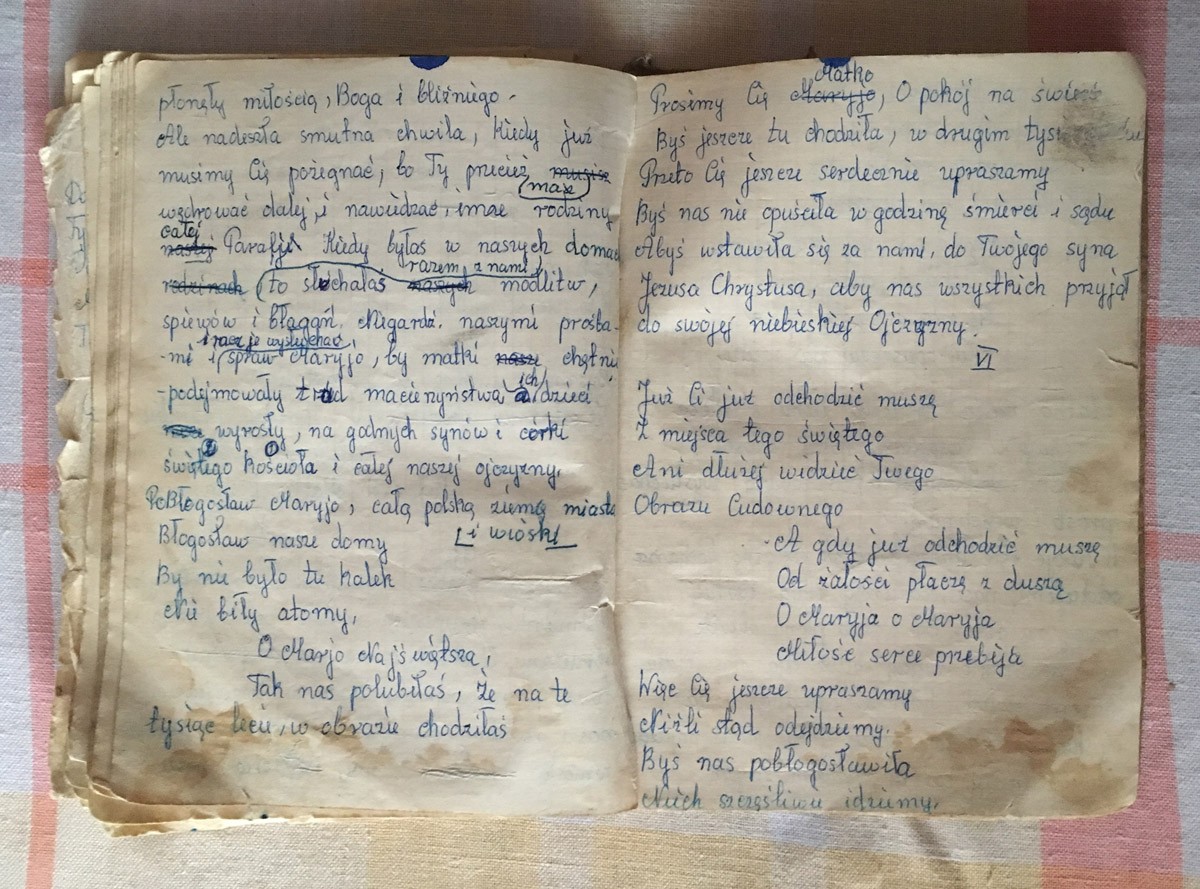 płonęły miłością, Boga i bliźniego.
Ale nadeszła smutna chwila, kiedy już
musimy Cię pożegnać, bo Ty przecież musisz
masz
wędrować dalej, i nawiedzać, inne rodziny
całej
naszej Parafji. Kiedy byłaś w naszych domach
razem z nami
rodzinach to słuchałaś naszych modlitw,
śpiewów i błagań. Nigardź, naszymi prośba-
i racz je wysłuchać,
-mi i spraw Maryjo, by matki nasze chętnie
ich
-podejmowały trud macierzyństwa a dzieci
wyrosły, na godnych synów i córki
2 1
świętego kościoła i całej naszej ojczyzny.
PoBłogosław Maryjo, całą polską ziemę miasta
i wioski
Błogosław nasze domy
By nie było tu kalek
Nie biły atomy,
O Marjo Najświętsza,
Tak nas polubiłaś, Że na te
tysiąc lecie, w obrazie chodziłaś
Matko
Prosimy Cię Maryjo, O pokój na świecie
Byś jeszcze tu chodziła, w drugim
Przeto Cię jeszcze serdecznie upraszamy
Byś nas nie opuściła w godzinę śmierci i sądu
Abyś wstawiła się za nami, do Twojego syna
Jezusa Chrystusa, aby nas wszystkich przyjął
do swójej niebieskiej Ojczyzny.
VI
Już Ci już odchodzić muszę
Z miejsca tego świętego
Ani dłużej widzieć Twego
Obrazu Cudownego
A gdy już odchodzić muszę
Od żałości płaczę z duszą
O Maryja o Maryja
Miłość serce przebija
Więc Cię jeszcze upraszamy
Niżli stąd odejdziemy.
Byś nas pobłogosławiła
Niech szczęśliwie idziemy.